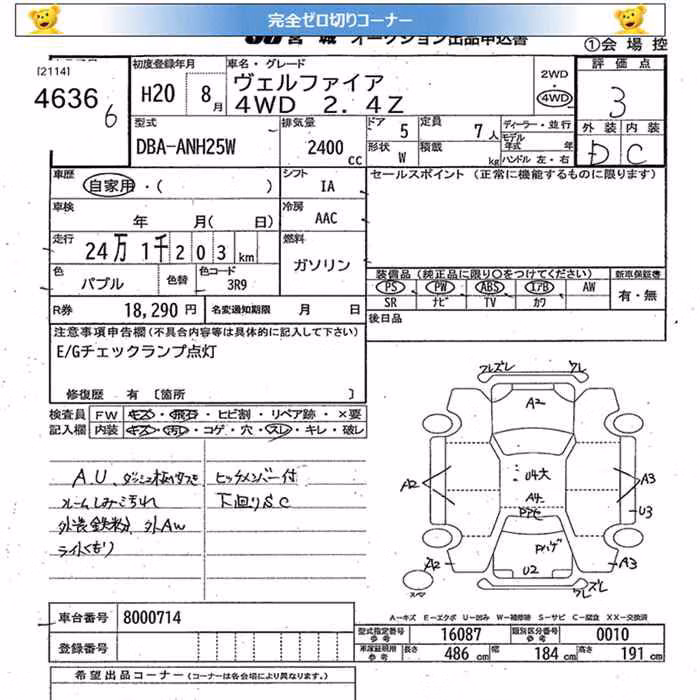 完全ゼロ切りコーナー
宮城 オークション出品申込書
①会場控
[2114]
4636 6
初度登録年月
H20 8月
車名・グレード
ヴェルファイア
4WD 2.4Z
2WD
・
4WD
評価点
3
外装 内装
D C
型式
DBA-ANH25W
排気量
2400 cc
ドア 5
定員 7人
形状 W
積載 kg
ディーラー・並行
モデル年式 年
ハンドル 左・右
車歴
自家用・( )
シフト
IA
セールスポイント (正常に機能するものに限ります)
車検
年 月( 日)
冷房
AAC
走行
24万1千203km
燃料
ガソリン
色
パブル
色替
色コード
3R9
装備品 (純正品に限り○をつけてください)
新車保証書
PS PW ABS エアB AW
SR ナビ TV カワ
有・無
R券 18,290円
名変通知期限 月 日
後日品
注意事項申告欄 (不具合内容等は具体的に記入して下さい)
E/Gチェックランプ点灯
修復歴 有 [箇所 ]
検査員記入欄
FW キズ・飛石・ヒビ割・リペア跡・×要
内装 キズ・汚れ・コゲ・穴・スレ・キレ・破レ
AU、
ヒッチメンバー付
下廻りSC
外装鉄粉、外AW
ライトくもり
クレズレ クレ
A2
U4大
A4
A2 A3
U3
Pハゲ
U2
A2 A3
クレズレ
スペア
A－キズ E－エクボ U－凹み W－補修跡 S－サビ C－腐食 XX－交換済
車台番号 8000714
登録番号
型式指定番号 参考 16087
類別区分番号 参考 0010
車庫証明用 参考 長さ 486cm 幅 184cm 高さ 191cm
希望出品コーナー (コーナーは各会場により異なります。)